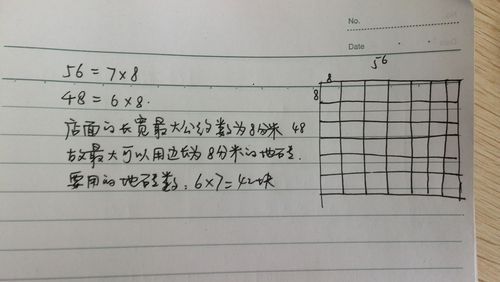 No.
Date
56 = 7×8
48 = 6×8.
店面的长宽最大公约数为8分米
故最大可以用边长为8分米的地砖.
要用的地砖数: 6×7=42块
56
8
8
48